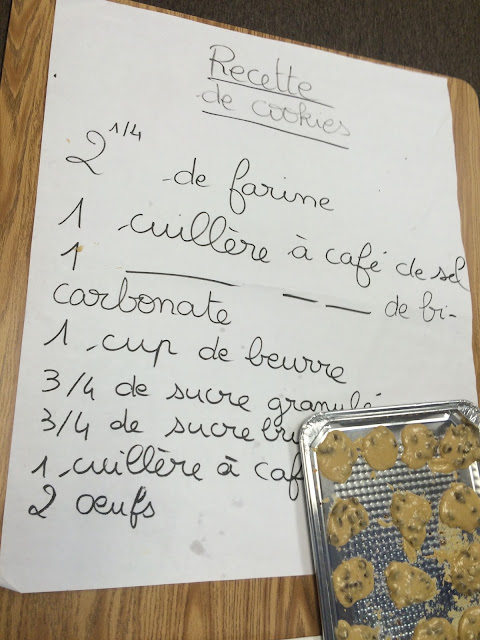 Recette
de cookies
2 1/4 de farine
1 cuillère à café de sel
1 ____ __ __ de bi-
carbonate
1 cup de beurre
3/4 de sucre granulé
3/4 de sucre
1 cuillère à
2 oeufs